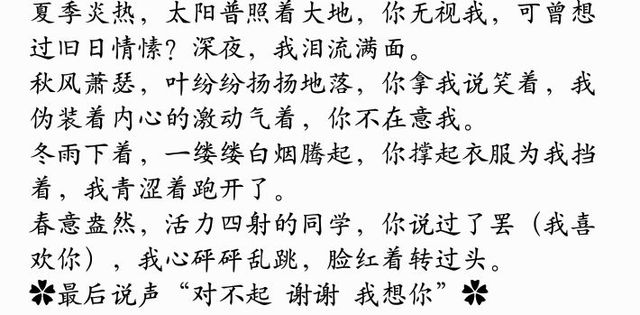 夏季炎热，太阳普照着大地，你无视我，可曾想
过旧日情愫？深夜，我泪流满面。
秋风萧瑟，叶纷纷扬扬地落，你拿我说笑着，我
伪装着内心的激动气着，你不在意我。
冬雨下着，一缕缕白烟腾起，你撑起衣服为我挡
着，我青涩着跑开了。
春意盎然，活力四射的同学，你说过了罢（我喜
欢你），我心砰砰乱跳，脸红着转过头。
✿最后说声“对不起 谢谢 我想你”✿